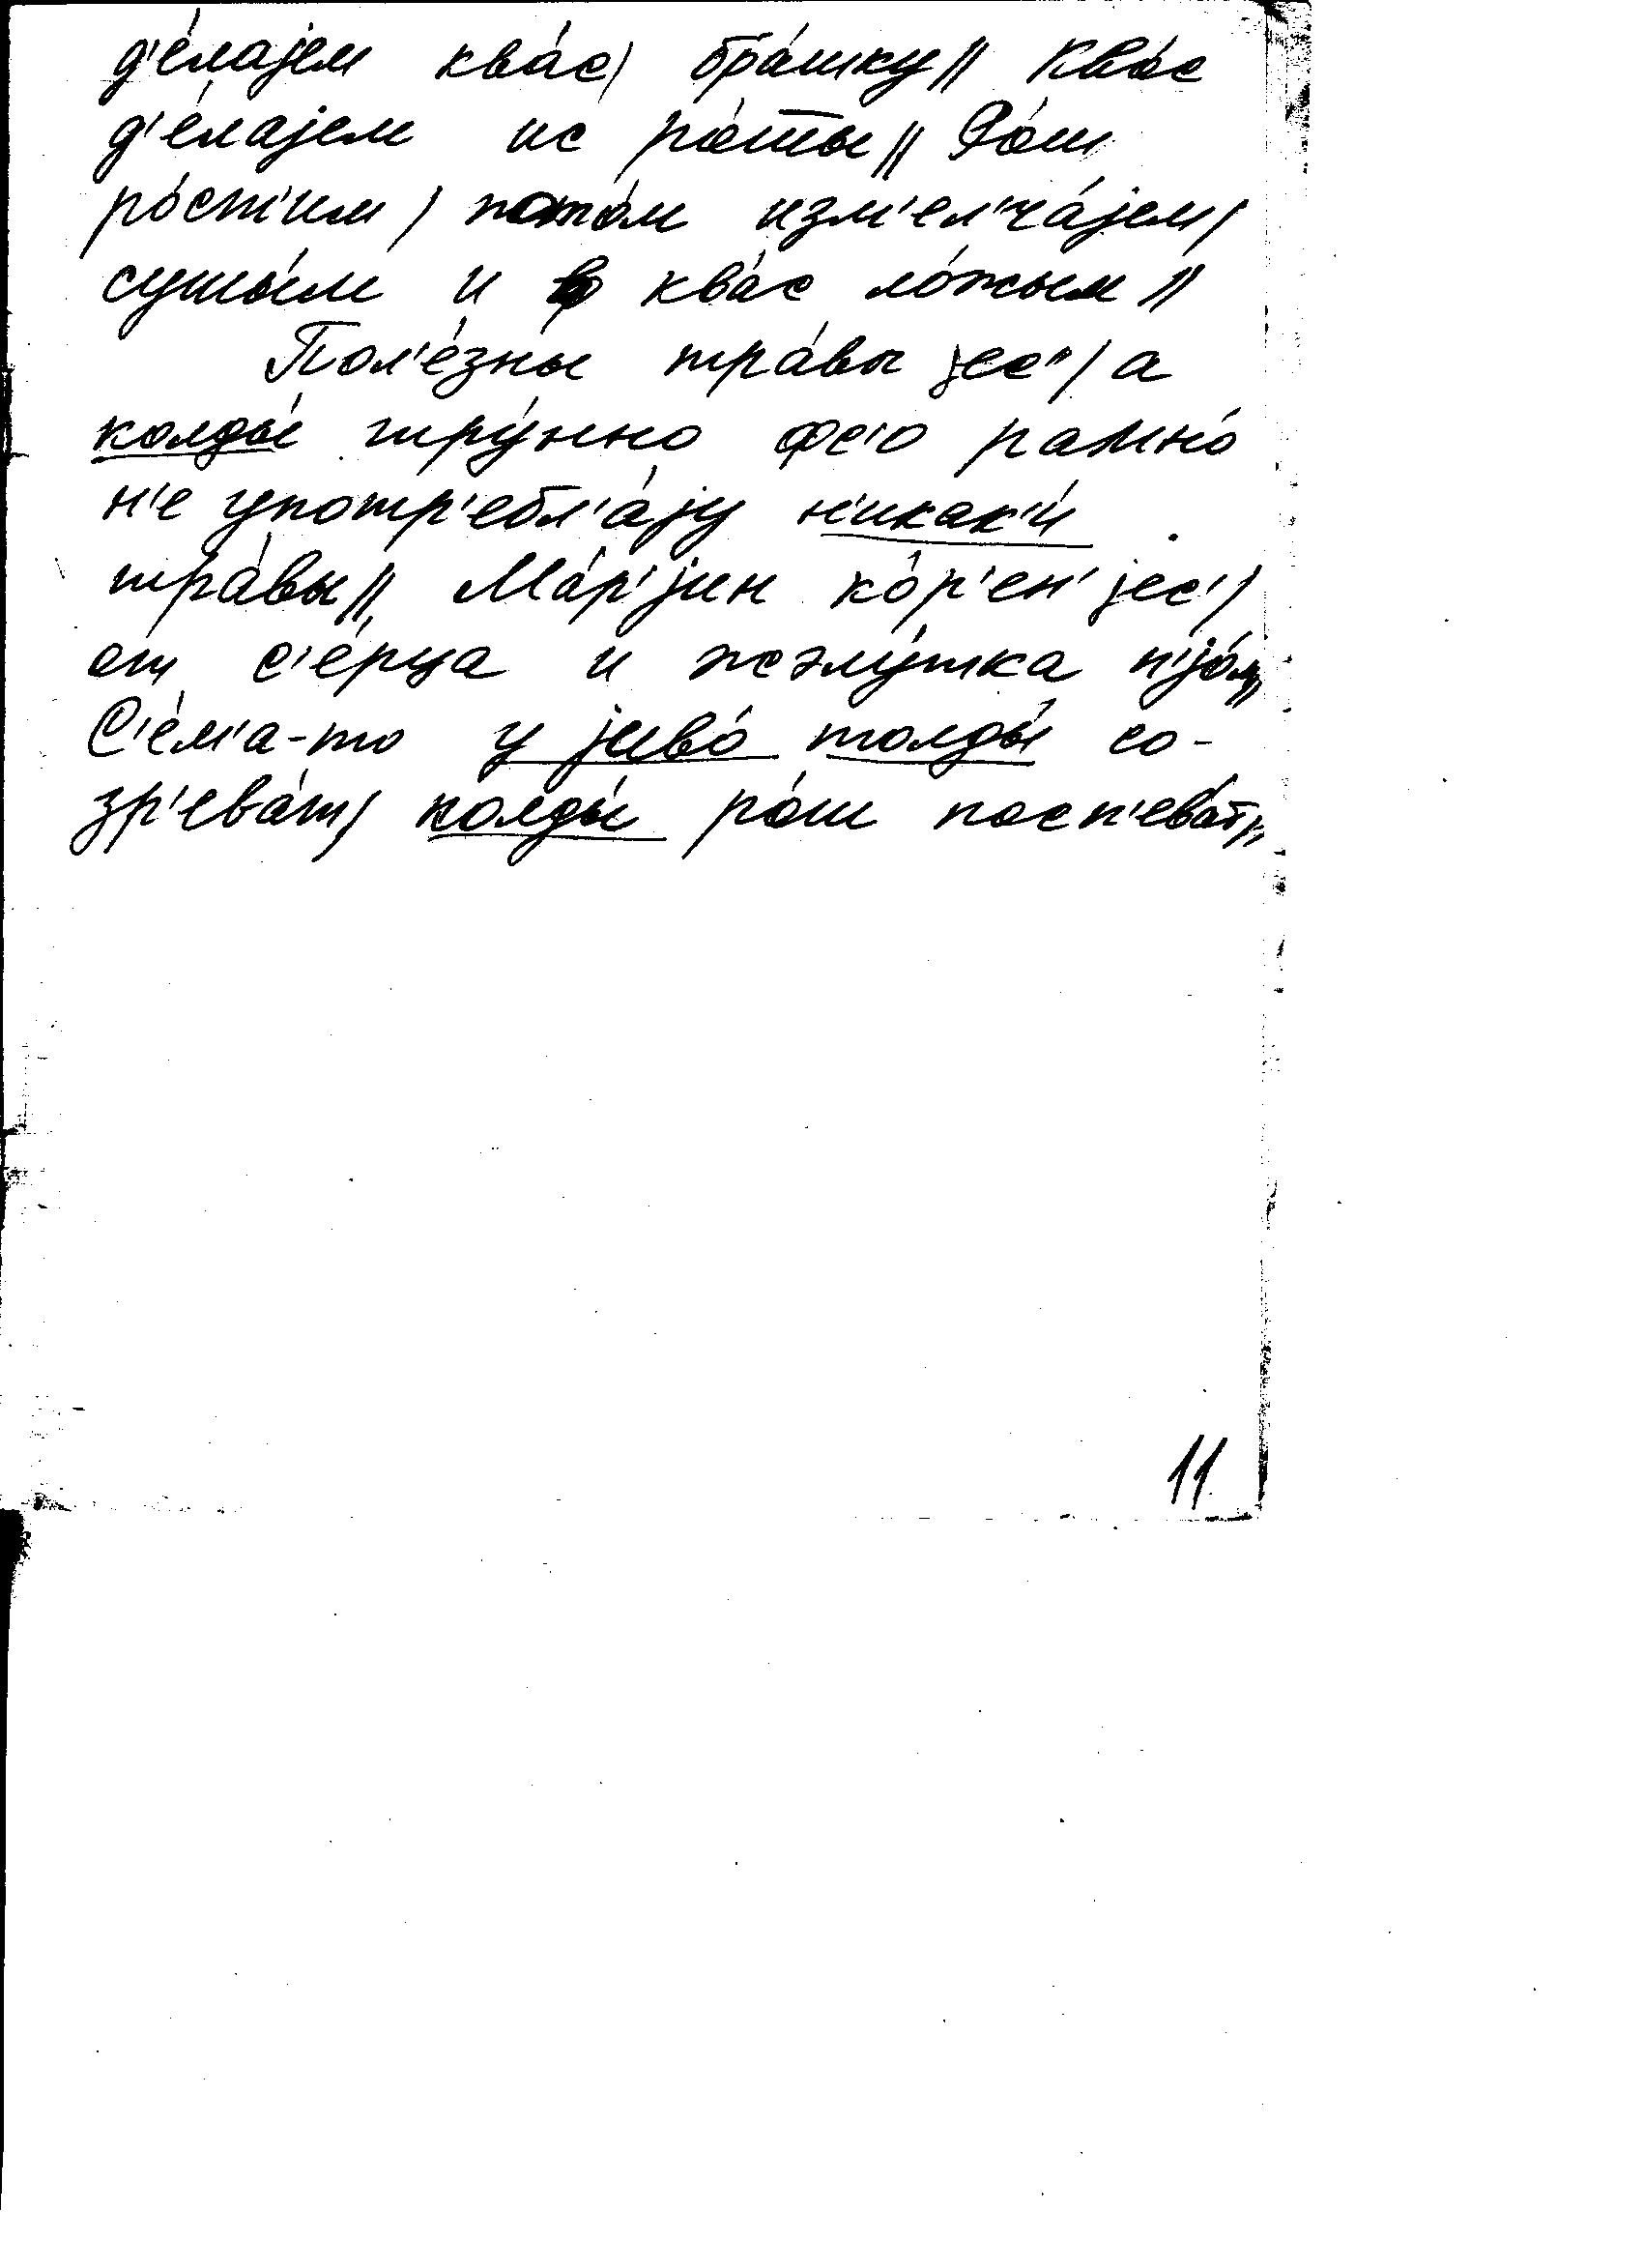 д'е́лајем ква́с/ бра́шку// Ква́с
д'е́лајем ис ро́т̅ы// Ро́ш
ро́ст'им/ пото́м изм'ел'ча́јем/
сушы́м и в ква́с ло́жым//
Пол'е́зны тра́вы јес'/ а
колды́ тру́нно фс'о рамно́
н'е употр'ебл'а́ју н'икак'и́
тра́вы// Ма́р'јин ко̂р'ен' јес'/
от с'е́рца и жэлу́тка п'јо́м//
С'е́м'а-то у јиво́ толды́ со-
зр'ева́т/ колды́ ро́ш посп'ева́т//
11